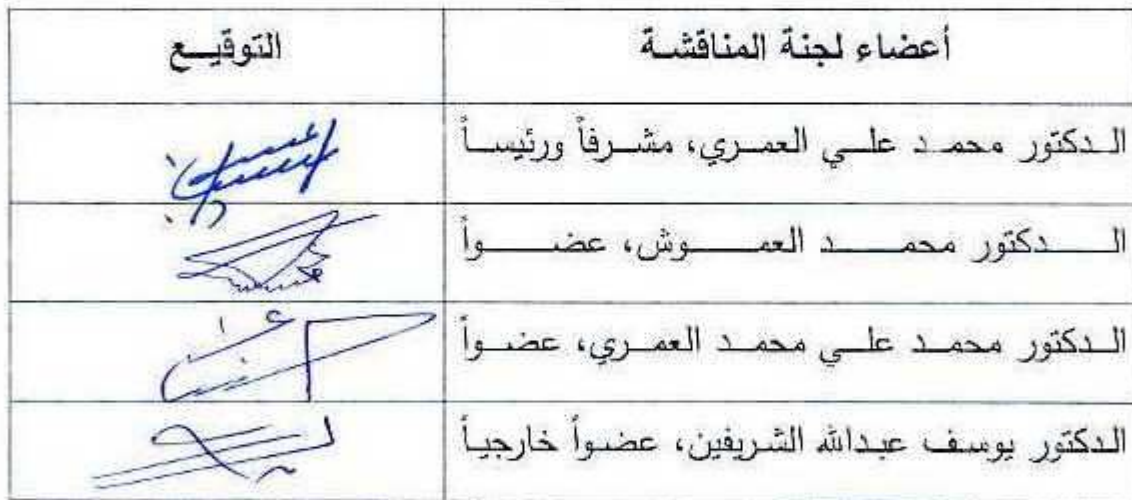 أعضاء لجنة المناقشة التوقيع
الدكتور محمد علي العمري، مشرفاً ورئيساً
الدكتور محمد العموش، عضواً
الدكتور محمد علي محمد العمري، عضواً
الدكتور يوسف عبدالله الشريفين، عضواً خارجياً